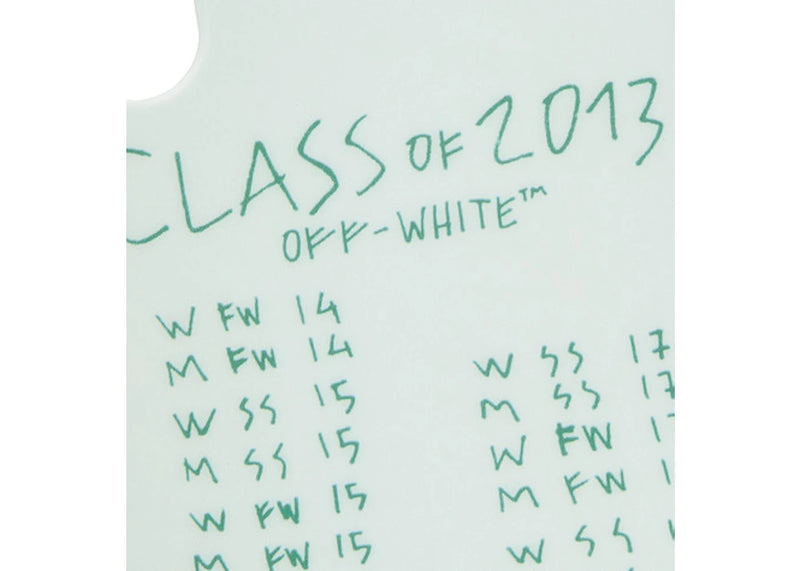 CLASS OF 2013
OFF-WHITE™
W FW 14
M FW 14
W SS 15
M SS 15
W FW 15
M FW 15
W SS 17
M SS 17
W FW 17
M FW 1
W SS